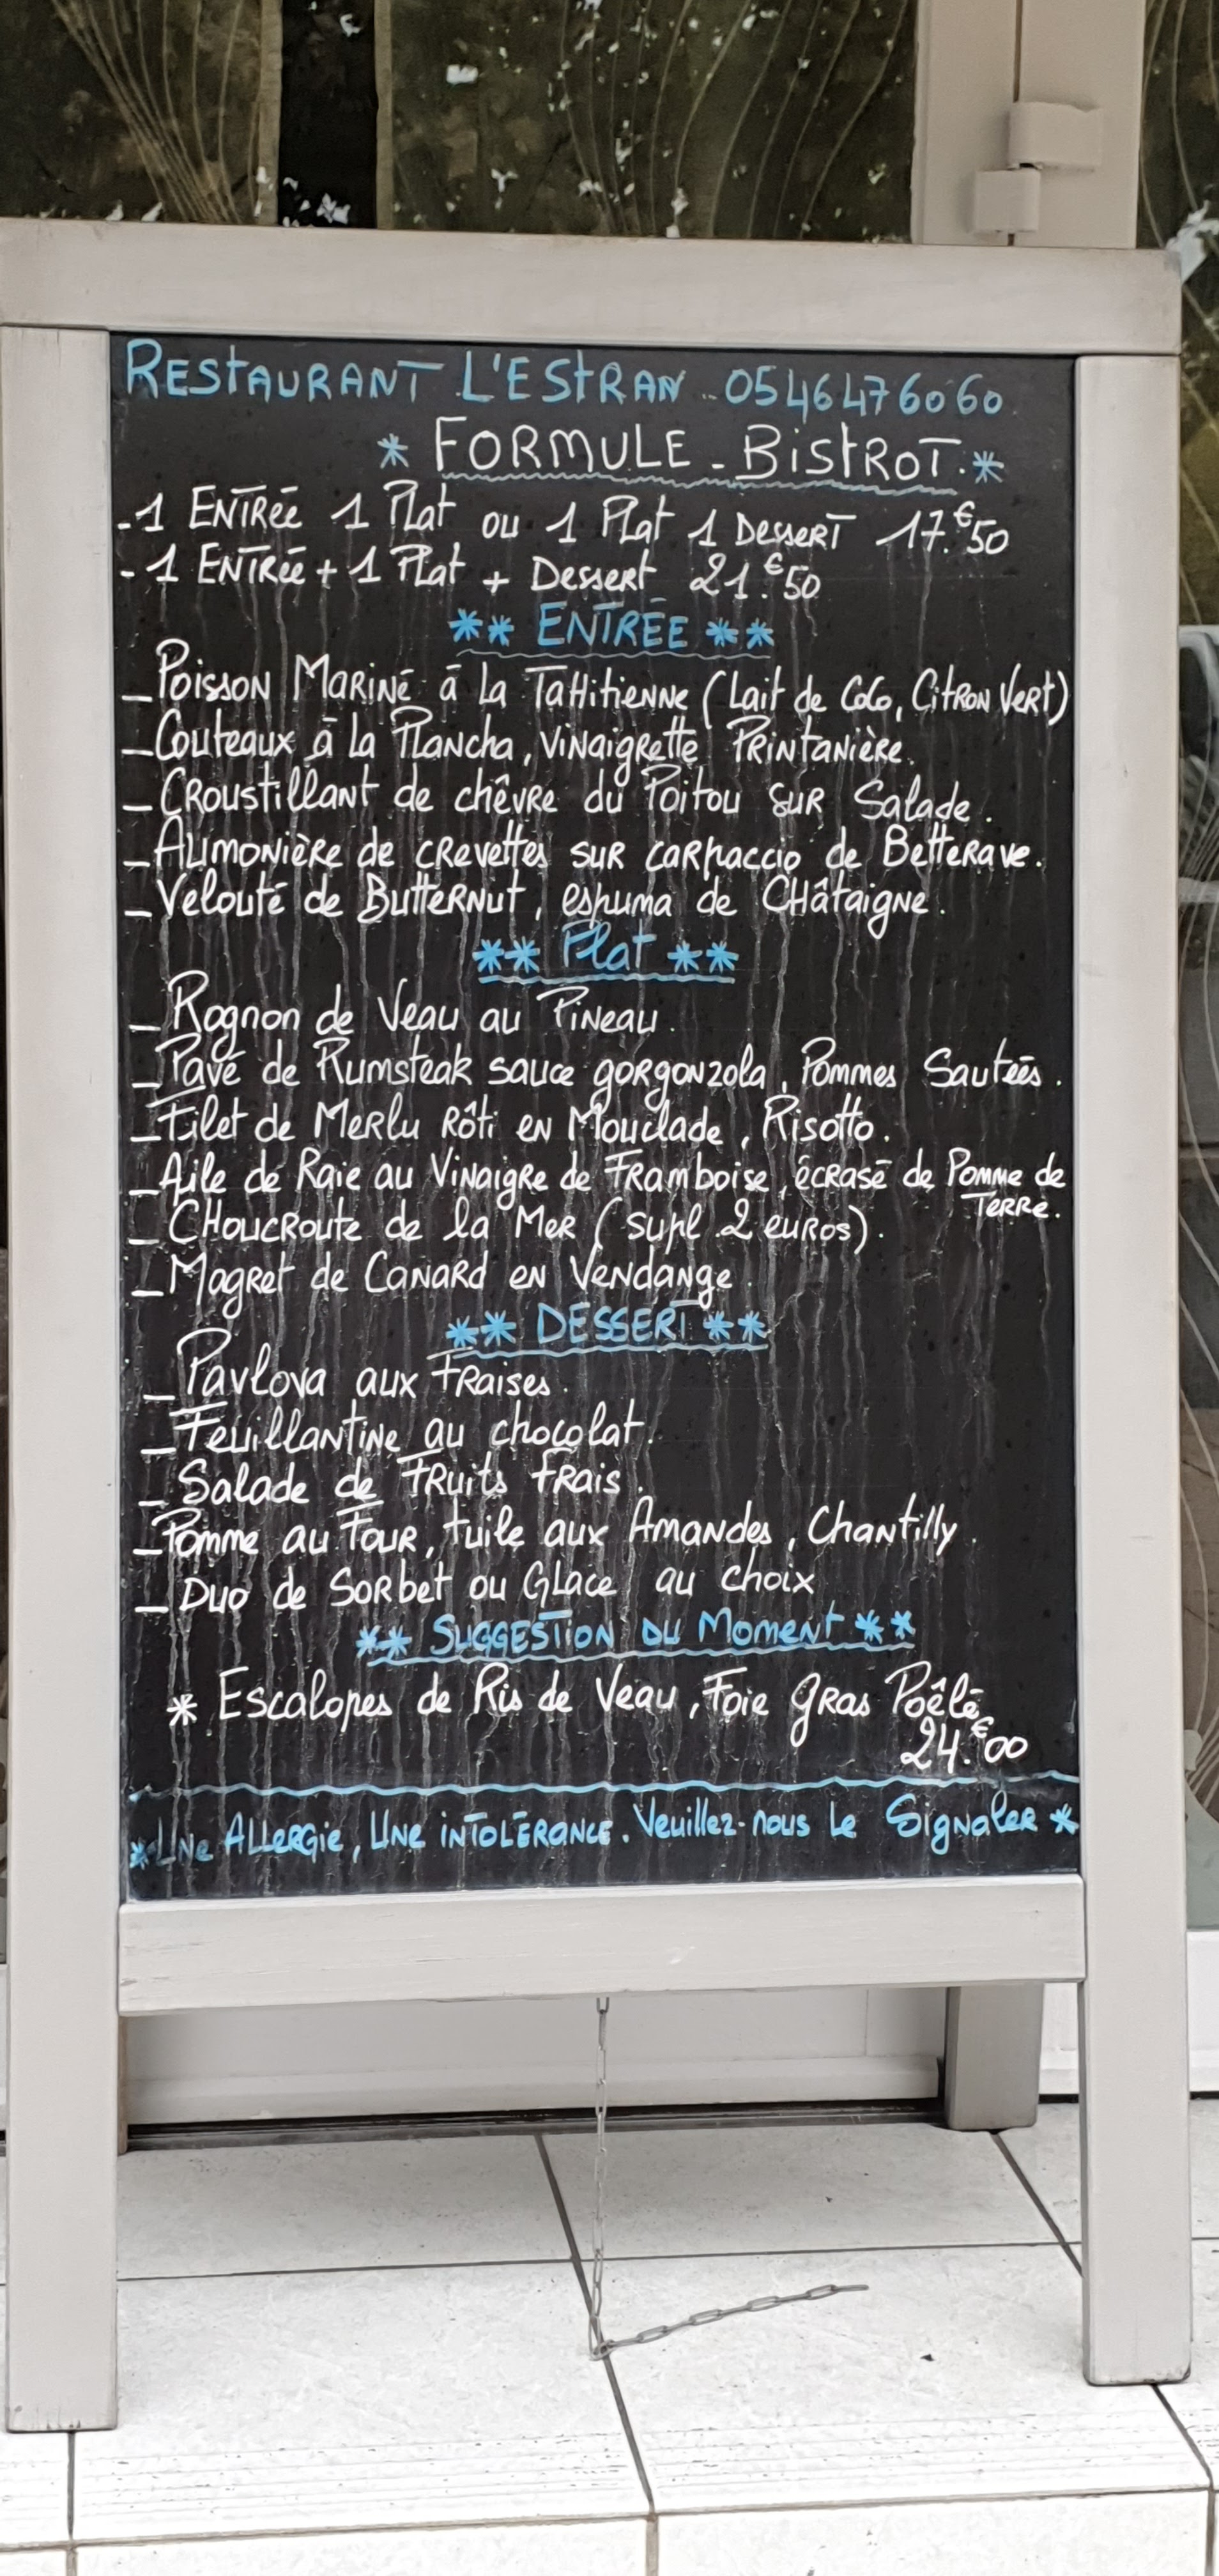 RESTAURANT L'ESTRAN.. 0546476060
* FORMULE - BISTROT. *
- 1 ENTRée 1 Plat ou 1 Plat 1 DesseRT 17.€50
- 1 ENTRée + 1 Plat + DesseRt 21.€50
** ENTRÉE **
_ Poisson MaRiné à la TaHitienne (Lait de CoCo, CitRon VeRt)
_ Couteaux à la PlanCha, Vinaigrette PRintanière.
_ CRoustillant de chêvRe du Poitou suR Salade.
_ AumonièRe de cRevettes suR caRpaccio de BetteRave.
_ Velouté de ButteRnut, espuma de CHâtaigne.
** Plat **
_ Rognon de Veau au Pineau.
_ Pavé de Rumsteak sauce goRgonzola, Pommes Sautées.
_ Filet de MeRlu Rôti en Mouclade, Risotto.
_ Aile de Raie au VinaigRe de FRamboise, écRasé de Pomme de
TeRRe.
_ CHoucRoute de la MeR (supl. 2 euRos).
_ MagRet de CanaRd en Vendange.
** DESSERT **
_ Pavlova aux FRaises.
_ Feuillantine au chocolat.
_ Salade de FRuits FRais.
_ Pomme au FouR, tuile aux Amandes, Chantilly.
_ Duo de SoRbet ou Glace au choix
** SUGGESTION DU MomenT **
* Escalopes de Ris de Veau, Foie gRas Poêlé
24.€00
* Une ALLeRgie, Une inTOLÉRANCE. Veuillez-nous Le SignaleR *